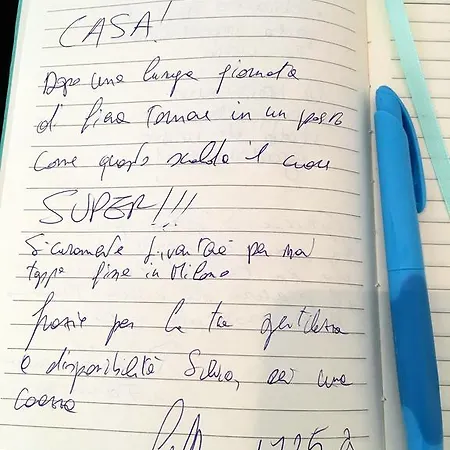 CASA!
Dopo una lunga giornata
di fiera tornare in un posto
come questo scalda il cuore
SUPER!!!
Sicuramente diventerà per noi
tappa fissa in Milano
Grazie per la tua gentilezza
e disponibilità Silvia, sei una